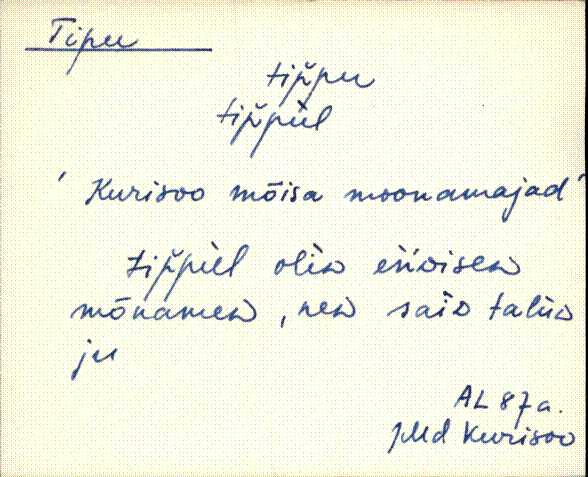 Tipu
tip̆pu
tip̆pül
' Kurisoo mõisa moonamajad '
tip̆pül oliɒ
mõnameɒ, neɒ saiɒ taluɒ
ju
AL 87a.
JMd Kurisoo